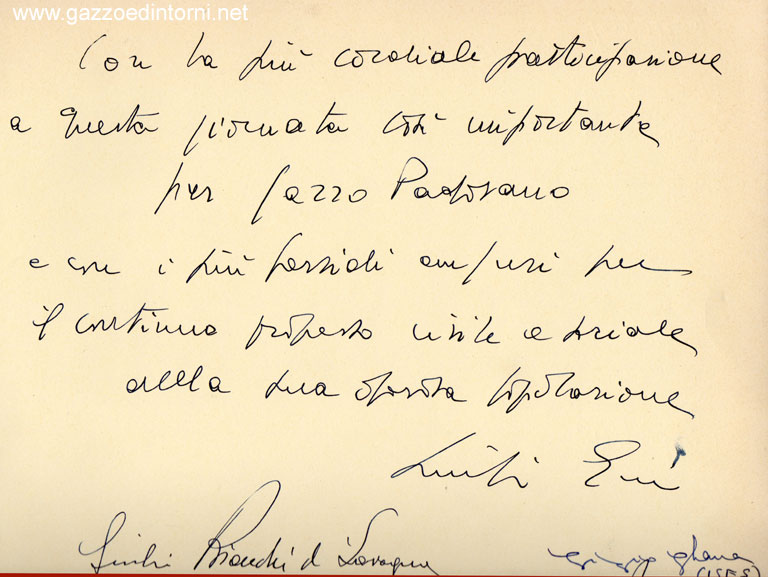 www.gazzoedintorni.net
Con la più cordiale partecipazione
a questa giornata così importante
per Gazzo Padovano
e con i più fervidi auguri per
il continuo progresso civile e sociale
della sua operosa popolazione
Luigi Gui
Giulio Bianchi di Lavagna
(ISES)